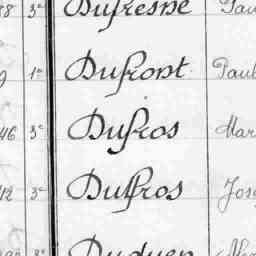 88 3e Dufresne Pau
9 1e Dufront Paul
46 3e Dufros Mar
12 3e Duffros Jose
3e Duquen